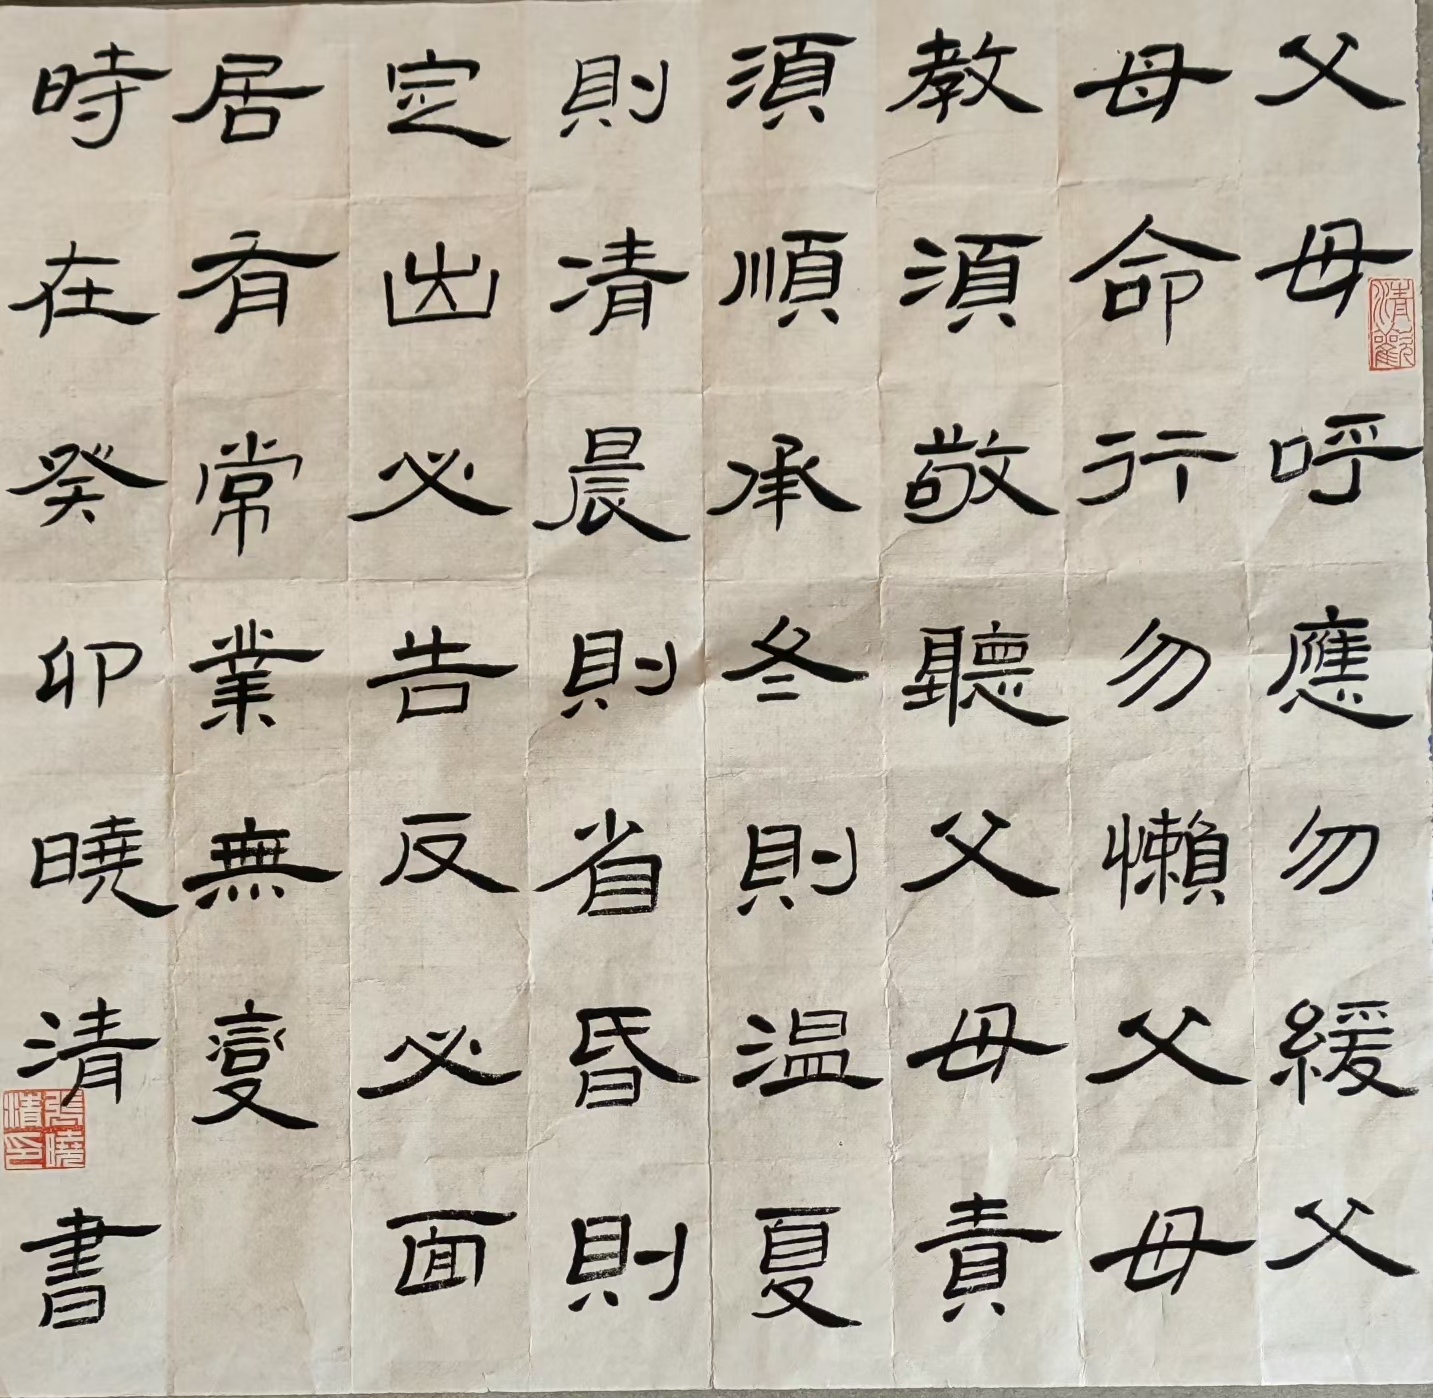 父母呼應勿緩父
母命行勿懶父母
教須敬聽父母責
須順承冬則温夏
則凊晨則省昏則
定出必告反必面
居有常業無變
時在癸卯曉清書
清歡
曉清印